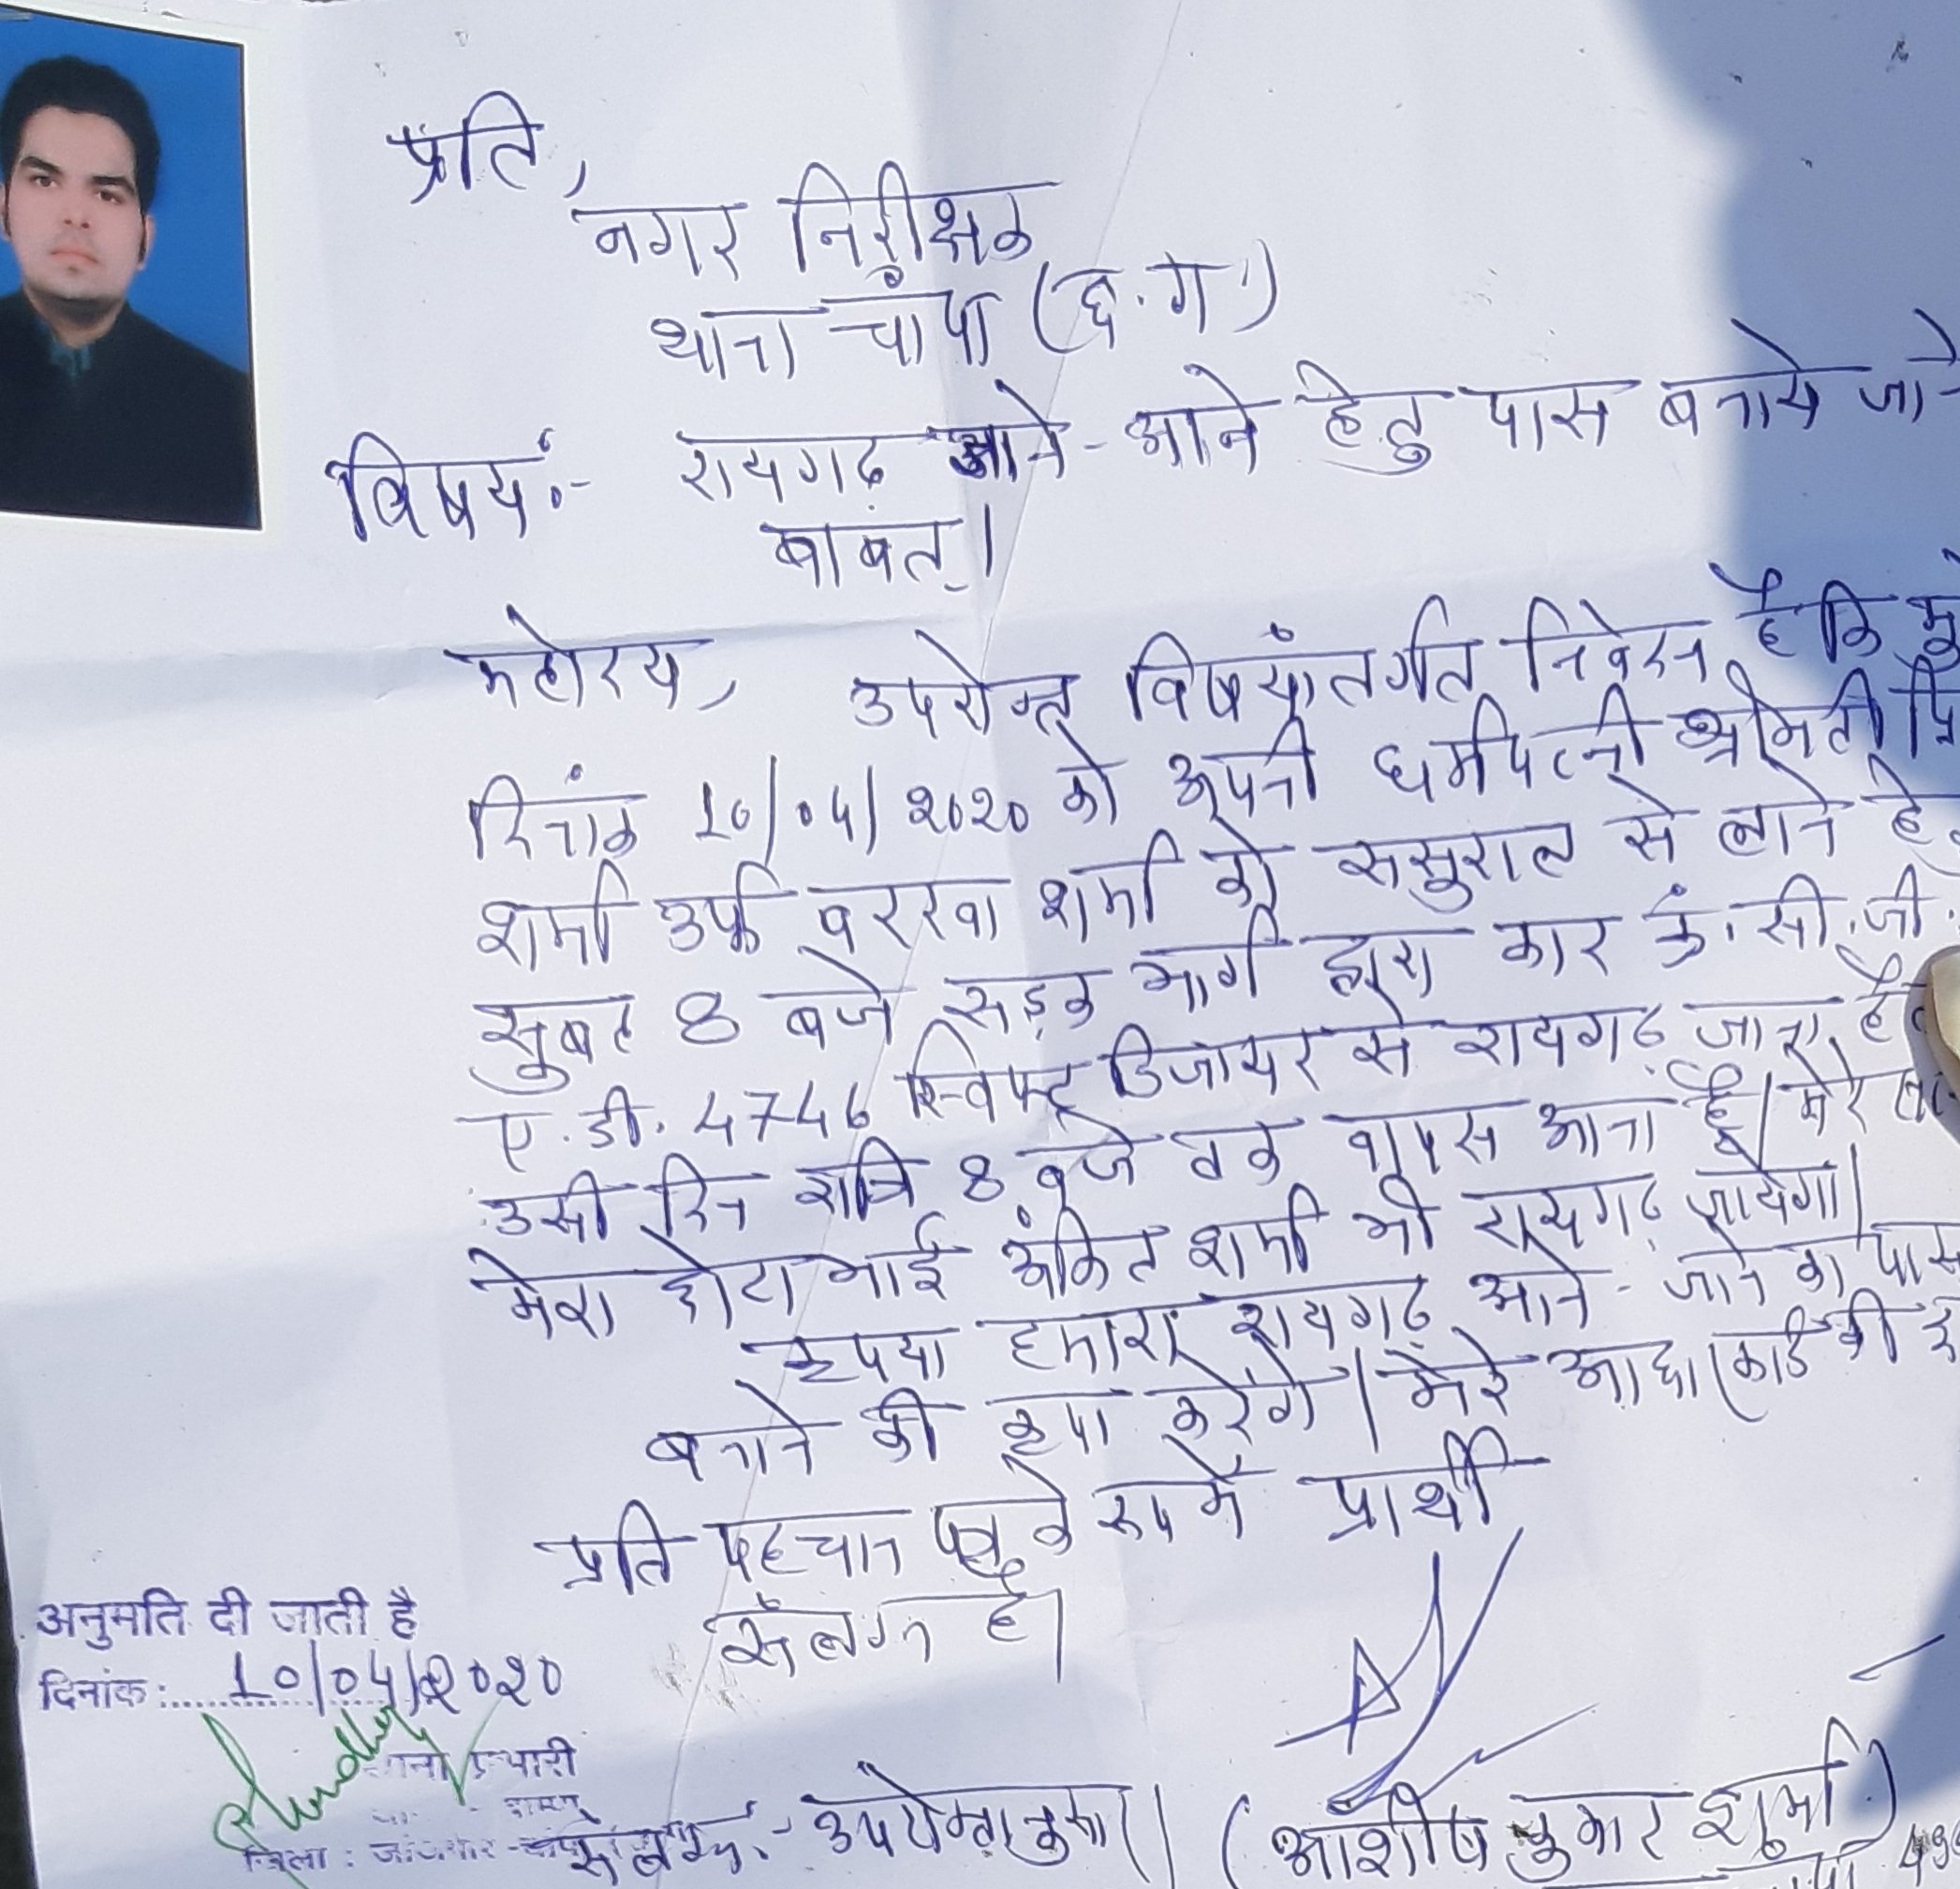 प्रति,
नगर निरीक्षक
थाना चांपा (छ.ग.)
विषय:- रायगढ़ जाने-आने हेतु पास बनाये जाने
बाबत्।
महोदय, उपरोक्त विषयांतर्गत निवेदन है कि
दिनांक 10/04/2020 को अपनी धर्मपत्नी श्रीमती
शर्मा उर्फ वरखा शर्मा को ससुराल से लाने
सुबह 8 बजे सड़क मार्ग द्वारा कार क्रं. सी.जी.
ए.डी. 4746 स्विफ्ट डिजायर से रायगढ़ जाना है
उसी दिन रात्रि 8 बजे तक वापस आना है। मेरे
मेरा छोटा भाई अंकित शर्मा भी रायगढ़ जायेगा।
कृपया हमारा रायगढ़ आने-जाने का पास
बनाने की कृपा करेंगे। मेरे आधार कार्ड की
प्रति पहचान पत्र के रूप में प्रार्थी
संलग्न है।
अनुमति दी जाती है
दिनांक: 10/04/2020
थाना प्रभारी
जिला : जांजगीर-चांपा
संलग्न:- उपरोक्तानुसार। (आशीष कुमार शर्मा)